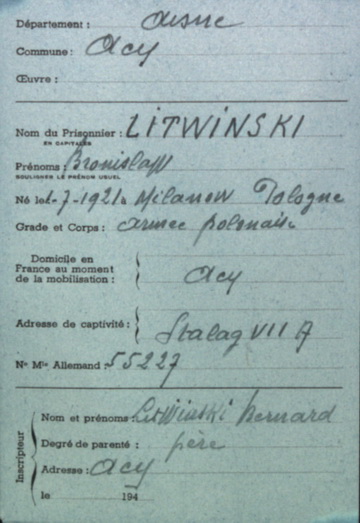 Département : Aisne
Commune : Acy
Œuvre :
Nom du Prisonnier : LITWINSKI
EN CAPITALES
Prénoms : Bronislaw
SOULIGNER LE PRÉNOM USUEL
Né le 1-7-1921 à Milanow Pologne
Grade et Corps : armée polonaise
Domicile en
France au moment
de la mobilisation :
Acy
Adresse de captivité :
Stalag VII A
N° Mle Allemand : 55227
Inscripteur
Nom et prénoms : Litwinski bernard
Degré de parenté : père
Adresse : Acy
le 194